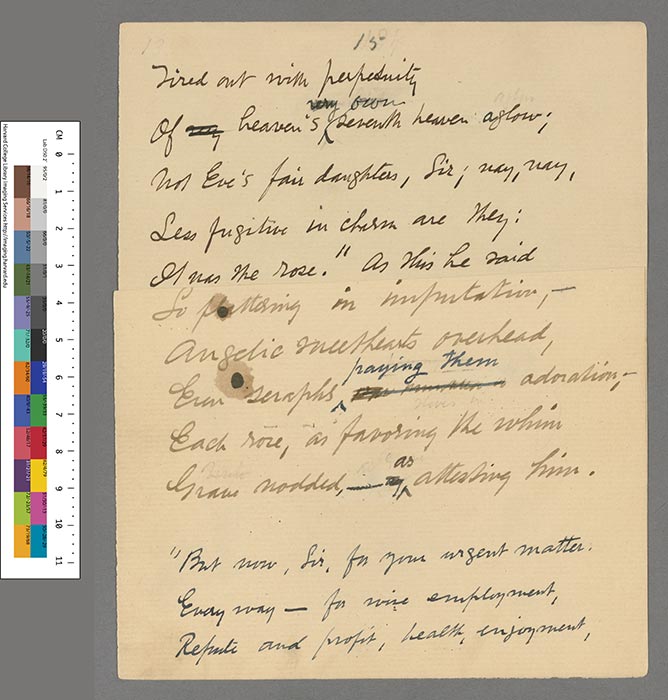 15
Tired out with perpetuity
very own
Of heaven's seventh heaven aglow;
Not Eve's fair daughters, Sir; nay, nay,
Less fugitive in charm are they:
It was the rose." As this he said
So flattering in imputation,—
Angelic sweethearts overhead,
paying them
Even seraphs adoration,—
Each rose, as favoring the whim
as
Grave nodded,— attesting him.
"But now, Sir, for your urgent matter.
Every way — for wise employment,
Repute and profit, health, enjoyment,
CM 0 1 2 3 4 5 6 7 8 9 10 11
Harvard College Library Imaging Services http://imaging.harvard.edu